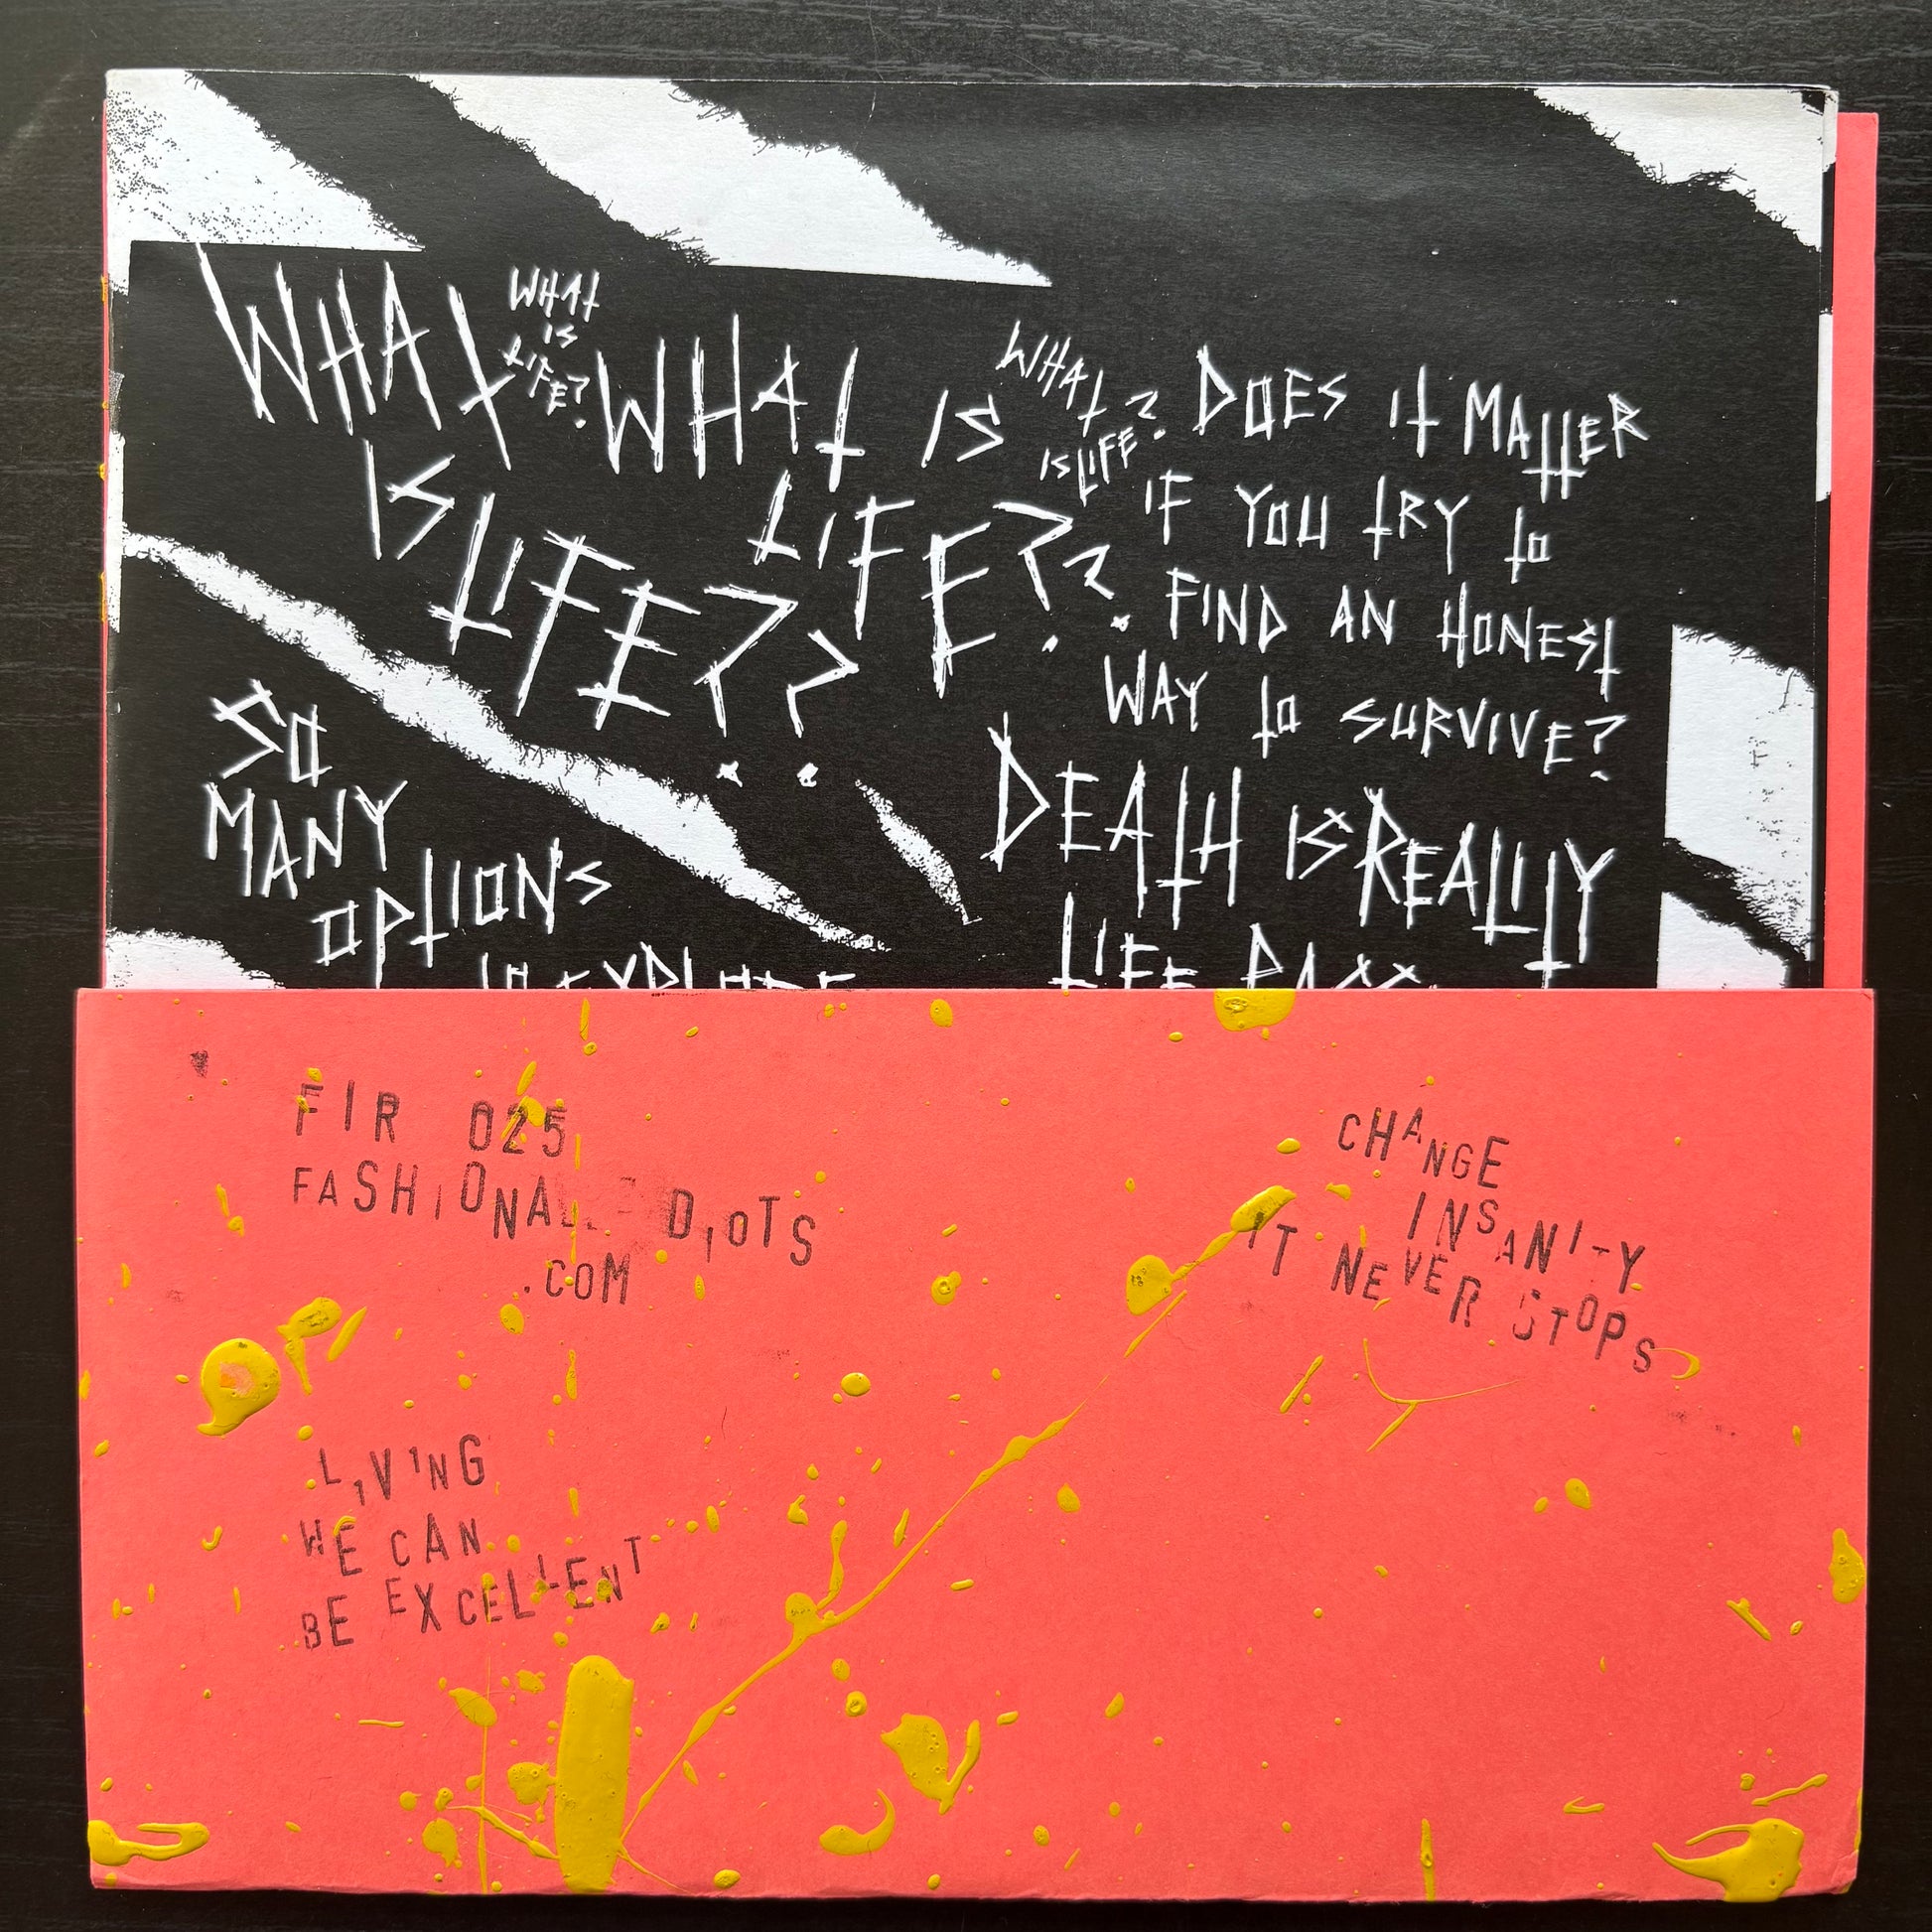 WHAT
IS
LIFE??
WHAT
IS
LIFE?
WHAT IS
LIFE??
WHAT
IS LIFE?
DOES IT MATTER
IF YOU TRY TO
FIND AN HONEST
WAY TO SURVIVE?
SO
MANY
OPTIONS
TO EXPLORE
DEATH IS REALLY
LIFE
FIR 025
FASHIONA DIOTS
.COM
CHANGE
INSANITY
IT NEVER STOPS
LIVING
WE CAN
BE EXCELLENT